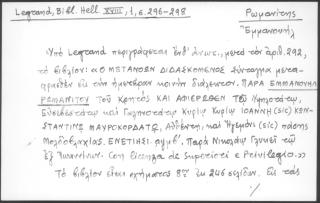 Legrand, Bibl. Hell XVIII, 1, σ. 296-298
Ρωμανίτης
Ἐμμανουήλ
Ὑπὸ Legrand περιγράφεται ἐνθ' ἀνωτ., μετὰ τὸν ἀριθ. 292,
τὸ βιβλίον: "Ο ΜΕΤΑΝΟΩΝ ΔΙΔΑΣΚΟΜΕΝΟΣ Σύνταγμα μετα-
φρασθὲν εἰς τὴν ἡμετέραν κοινὴν διάλεκτον. ΠΑΡΑ ΕΜΜΑΝΟΥΗΛ
ΡΩΜΑΝΙΤΟΥ τοῦ Κρητὸς ΚΑΙ ΑΦΙΕΡΩΘΕΝ τῷ Ὑψηλοτάτῳ,
Εὐσεβεστάτῳ καὶ Γαληνοτάτῳ Κυρίῳ Κυρίῳ ΙΩΑΝΝΗ (sic) ΚΩΝ-
ΣΤΑΝΤΙΝΩ ΜΑΥΡΟΚΟΡΔΑΤΩ, Αὐθέντῃ, καὶ Ἡγεμόνι (sic) πάσης
Μολδοβλαχίας. ΕΝΕΤΙΗΣΙ. Παρὰ Νικολάῳ Γλυκεῖ τῷ
ἐξ Ἰωαννίνων. Con licenza de Superiori e Privilegio.
Τὸ βιβλίον εἶναι σχήματος 8ου ἐκ 246 σελίδων. Εἰς τὰς